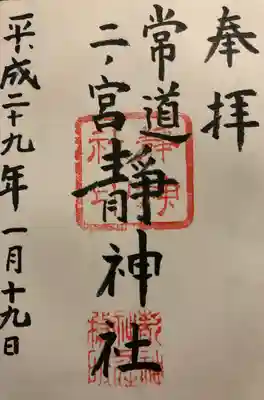 奉拝
常道
二ノ宮靜神社
平成二十九年一月十九日